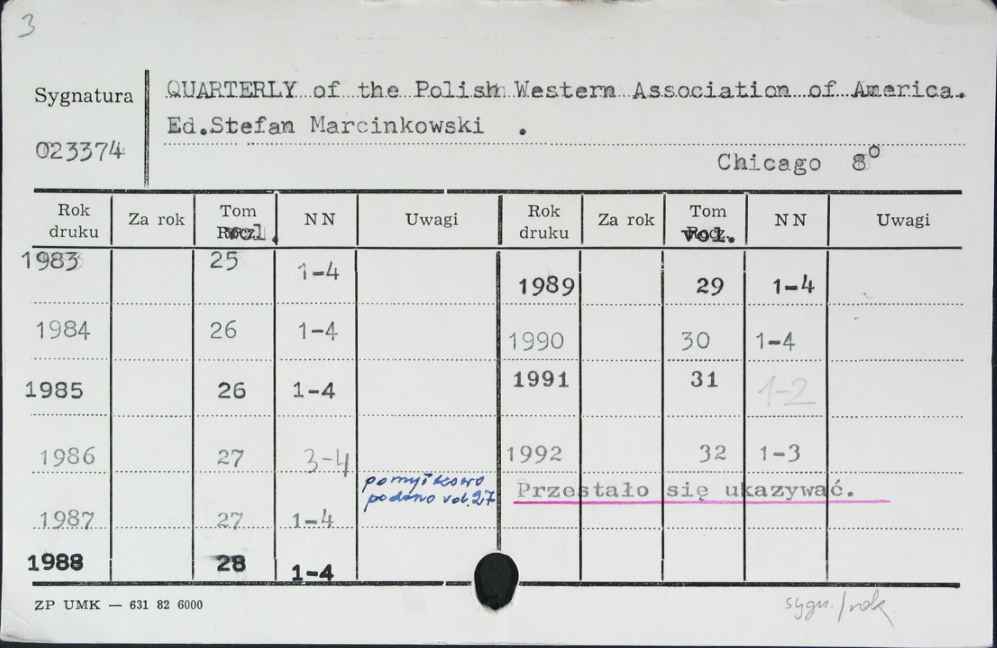 3
Sygnatura
QUARTERLY of the Polish Western Association of America.
Ed.Stefan Marcinkowski .
023374
Chicago 8°
Rok druku Za rok Tom vol. NN Uwagi Rok druku Za rok Tom vol. NN Uwagi
1983 25 1-4
1989 29 1-4
1984 26 1-4
1990 30 1-4
1985 26 1-4
1991 31 1-2
1986 27 3-4
1992 32 1-3
pomyłkowo
podano vol.27
Przestało się ukazywać.
1987 27 1-4
1988 28 1-4
ZP UMK — 631 82 6000
sygn./rok